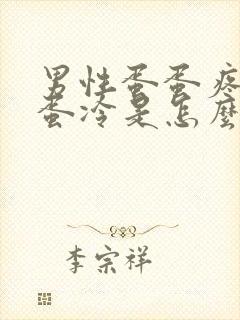 男性蛋蛋疼
蛋冷是怎麼
李宗祥